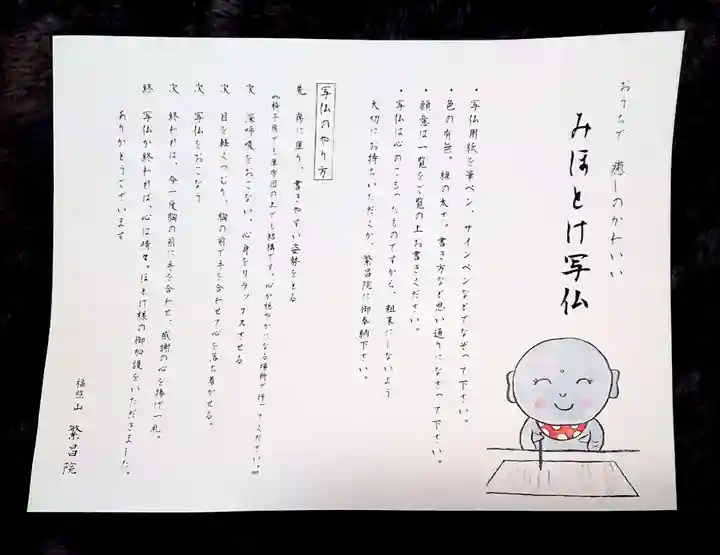 おうちで 癒しのかわいい
みほとけ写仏
・写仏用紙を筆ペン、サインペンなどでなぞって下さい。
・色の有色。線の太さ。書き方など思い通りになさって下さい。
・願意は一覧をご覧の上お書きください。
・写仏は心のこもったものですから、粗末にしないよう
大切にお持ちいただくか、繁昌院に御奉納下さい。
写仏のやり方
先 席に座り、書きやすい姿勢をとる
《椅子席でも座布団の上でも結構です。心が穏やかになる場所で行ってください。》
次 深呼吸をおこない、心身をリラックスさせる
次 目を軽くつむり、胸の前で手を合わせて心を落ち着かせる。
次 写仏をおこなう
次 終われば、今一度胸の前に手を合わせ、感謝の心を捧げ一礼。
終 写仏が終われば、心は晴々。ほとけ様の御加護をいただきました。
ありがとうございます
福照山 繁昌院